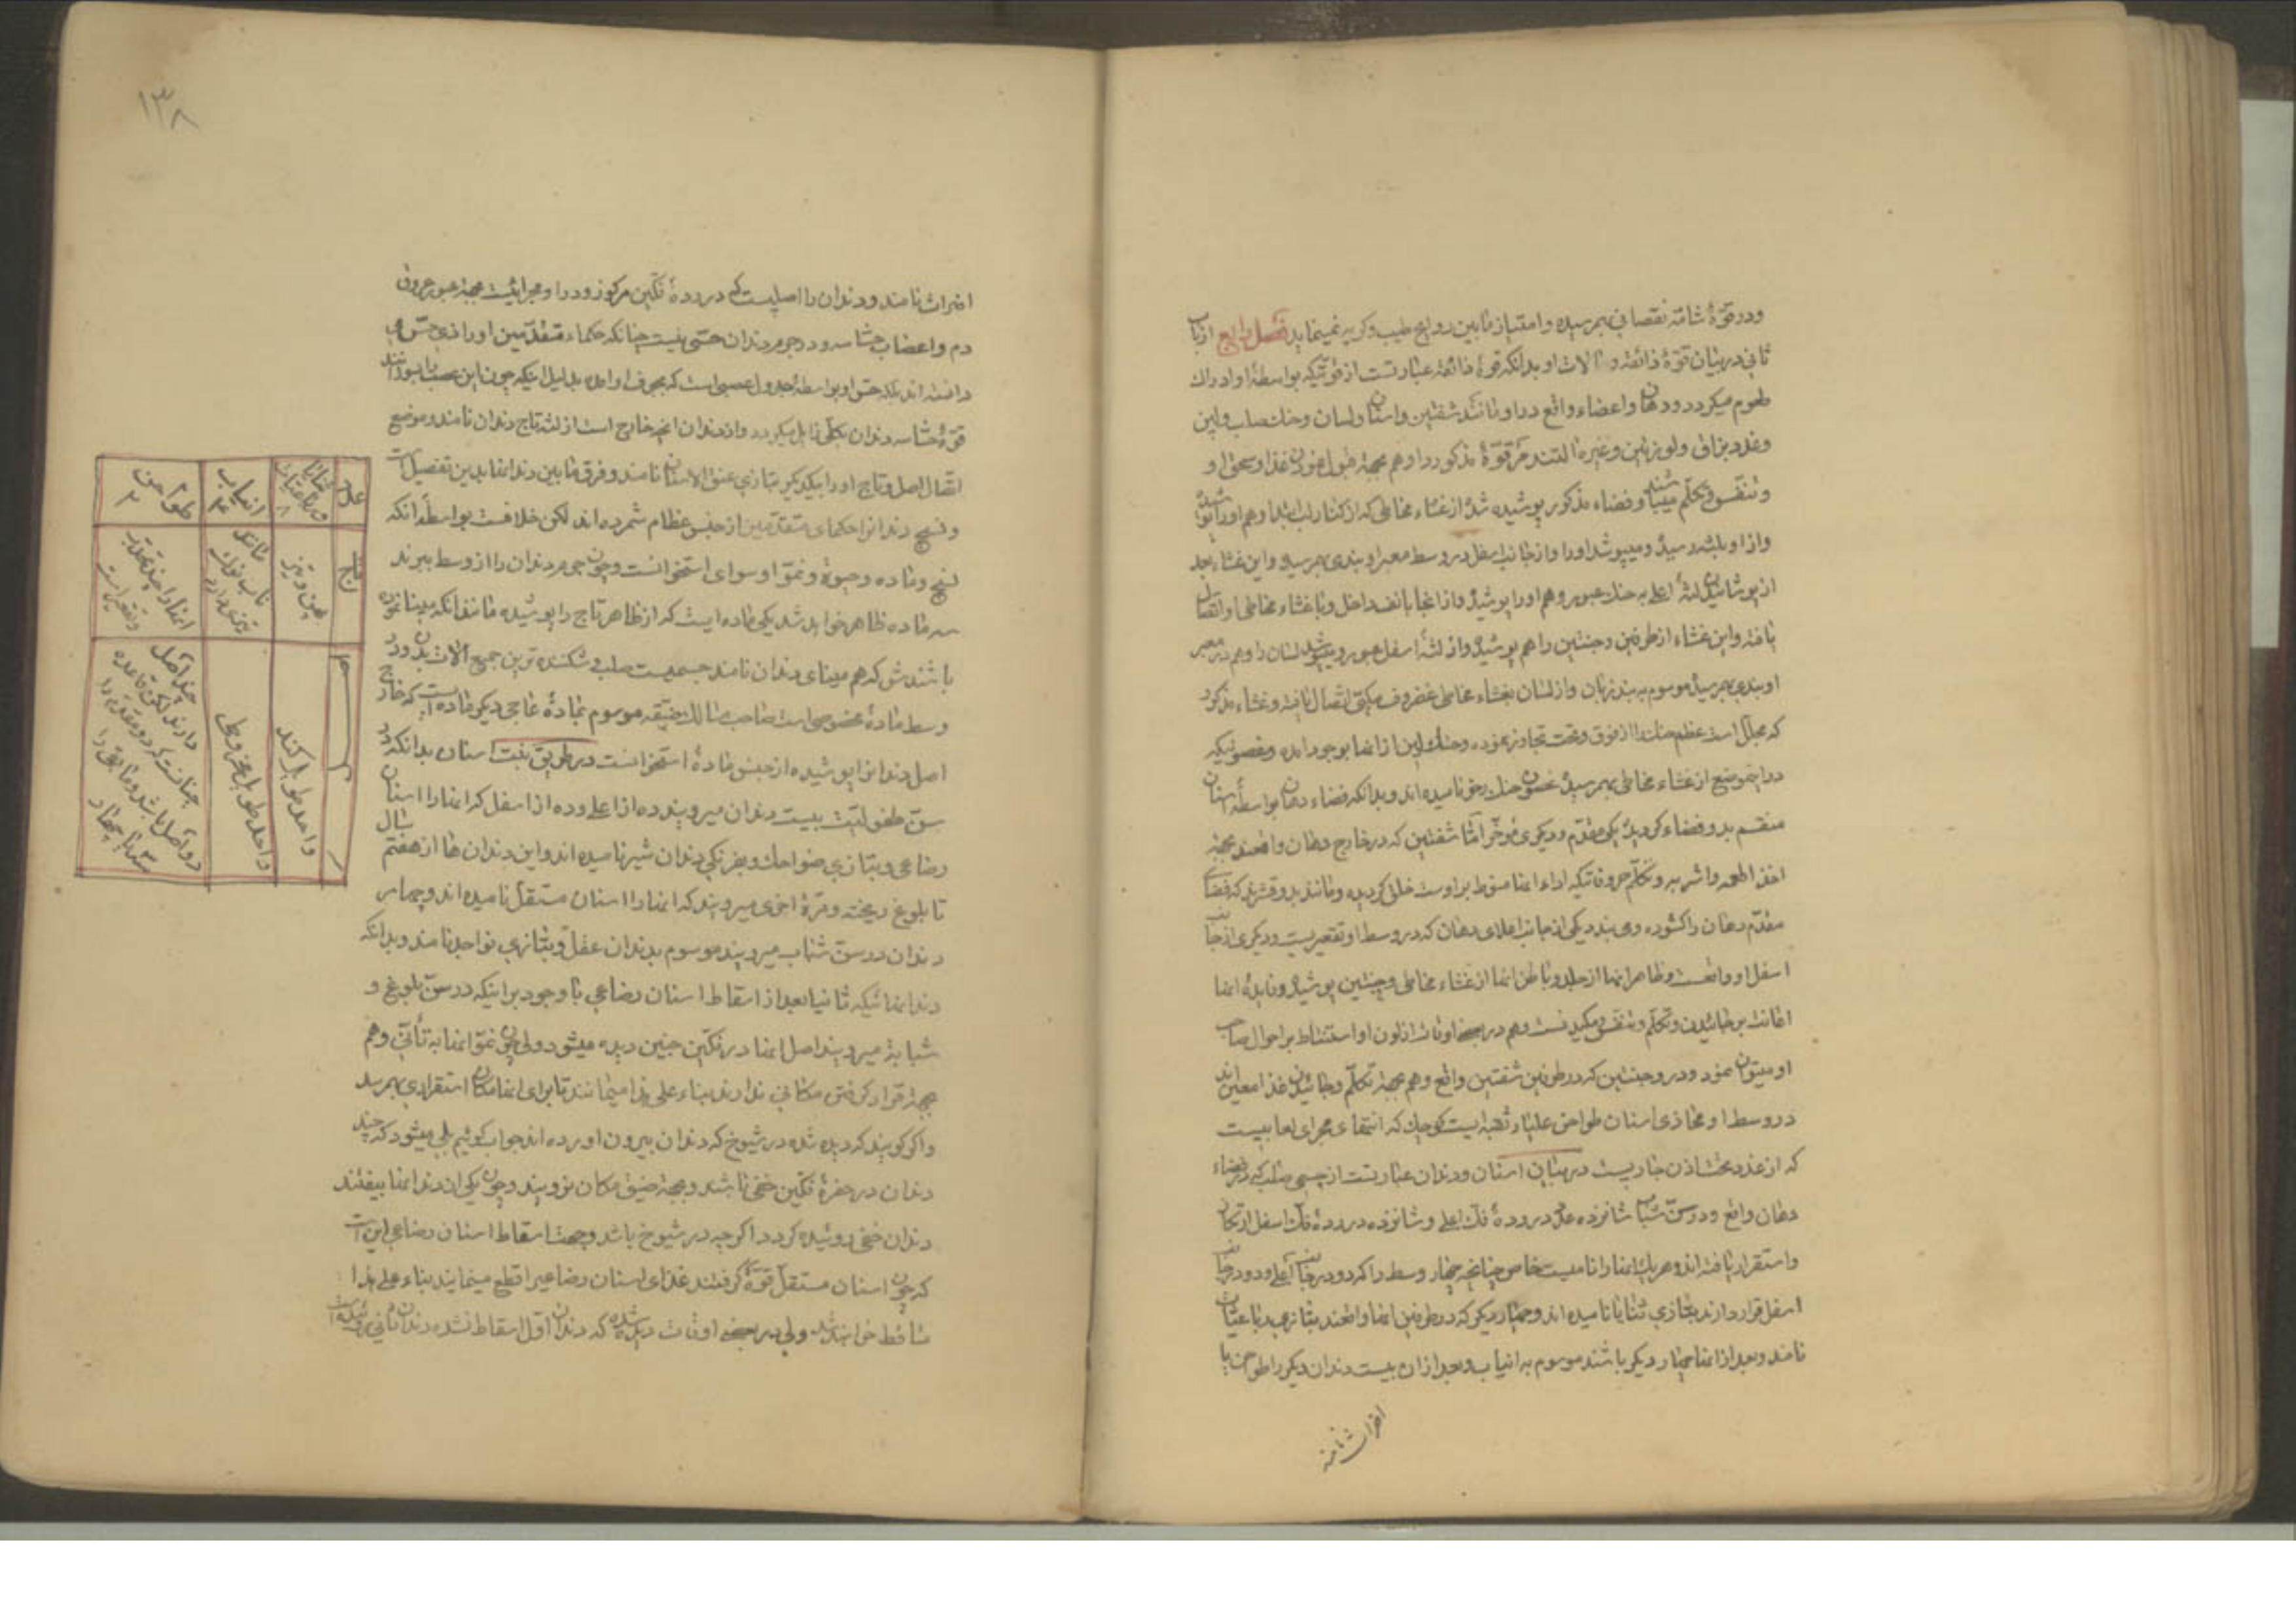 ودر قوّهٔ شامّه نقصانی بهم رسیده و امتیاز مابین روایح طیب و کریه نمینماید فصل رابع از باب
ثانی در بیان قوّهٔ ذائقه و الات او بدانکه قوهٔ ذائقه عبارتست از قوتیکه بواسطهٔ او ادراک
طعوم میکردد ودهان واعضاء واقع در او مانند شفتین واسنان ولسان وحنک صلب ولین
وغدد بزاق ولوزتین وغیره التند مر قوّهٔ مذکور را وهم بجهة غذا و
وتنفّس وتکلّم میباشند وفضاء مذکور پوشیده شده از غشاء مخاطی که از کنار لب
واز او بلثه رسیده ومیپوشد اورا واز جانب اسفل در وسط معبر او بندی بهم رسیده واین غشاء بعد
از پوشانیدن لثهٔ اعلی به حنک عبور وهم اورا پوشیده واز انجا بانف داخل وبا غشاء مخاطی او اتصال
یافته واین غشاء از طرفین وجنتین را هم پوشیده واز لثهٔ اسفل عبور و لسان را وهم در معبر
او بندی بهم رسیده موسوم به بند زبان واز لسان بغشاء مخاطی غضروف مکبّی اتصال یافته وغشاء مذکور
که مجلّل است عظم حنک را از فوق وتحت تجاوز نموده وحنک لین از انها بوجود امده
در اینموضع از غشاء مخاطی بهم رسیده حنک رخو نامیده اند وبدانکه فضاء دهان بواسطهٔ اسنان
منقسم بدو فضاء کردیده یکی مقدّم ودیکری مؤخّر امّا شفتین که در خارج دهان واقعند بجهة
اخذ اطعمه واشربه وتکلّم حروفاتیکه اداء انها منوط بر اوست خلق کردیده ومانند بدو قشرند که فضاء
مقدّم دهان را کشوده ومی بندد یکی از جانب اعلای دهان که در وسط او تقعیریست ودیکری از جانب
اسفل او واقعست وظاهر انها از جلد وباطن انها از غشاء مخاطی وجنتین پوشیده وفایدهٔ انها
اعانت بر خائیدن وتکلّم وتنفّس ومکیدنست وهم در بعضی اوقات از لون او استنباط بر احوال صاحب
او میتوان نمود ودر وجنتین که در طرفین شفتین واقع وهم بجهة تکلّم وخائیدن غذا معین اند
در وسط او محاذی اسنان طواحن علیاء ثقبه ایست کوچک که انتهای مجرای لعابیست
که از غدد تحت اذن جاریست در بیان اسنان ودندان عبارتست از جسمی صلب که در فضاء
دهان واقع ودر سنّ شباب شانزده عدد در ردهٔ فک اعلی وشانزده در ردهٔ فک اسفل ارتکاز
واستقرار یافته اند وهر یک انها را نامیست خاص چنانچه چهار وسط را که دو در جانب اعلی ودو در جانب
اسفل قرار دارند بتازی ثنایا نامیده اند وچهار دیکر که در طرفین انها واقعند بتازی رباعیات
نامند وبعد از انها چهار دیکر باشند موسوم به انیاب وبعد از ان بیست دندان دیکر را طواحن یا
اضراث نامند
۱۳۸
اضراث نامند ودندان را اصلیست که در ردهٔ فکّین مرکوز ودر او مجرائیست بجهة عبور عروق
دم واعصاب حسّاسه ودر جرم دندان حسّی نیست چنانکه حکماء متقدّمین اورا ذی حسّ می
دانسته اند بلکه حسّ او بواسطهٔ جدول عصبی است که بجوف او امده بدلیل اینکه چون این عصب را بسوزانند
قوّهٔ حسّاسه دندان بکلّی زایل میکردد واز دندان انچه خارج است از لثه تاج دندان نامند وموضع
اتصال اصل وتاج اورا بیکدیکر بتازی عنق الاسنان نامند وفرق مابین دندانها بدین تفصیل است
ونسج دندانرا حکمای متقدّمین از جنس عظام شمرده اند لکن خلافست بواسطهٔ انکه
نسج وماده وحیوة ونموّ او سوای استخوانست وچون جرم دندان را از وسط ببرند
سه ماده ظاهر خواهد شد یکی ماده ایست که از ظاهر تاج را پوشیده مانند انکه بمینا نموده
باشندش که هم مینای دندان نامند جسمیست صلب وشکننده ترین جمیع الات بدن ودر
وسط مادهٔ مخصوصی است صاحب مسالک دقیقه موسوم بمادهٔ عاجی دیکر ماده ایست که خارج
اصل دندانرا پوشیده از جنس مادهٔ استخوانست در طریق نبت اسنان بدانکه در
سنّ طفولیّت بیست دندان میرویند ده از اعلی وده از اسفل که انها را اسنان
رضاعی وبتازی ضواحک وبفرنکی دندان شیر نامیده اند واین دندان ها از هفتم سال
تا بلوغ ریخته ومرّهٔ اخری میرویند که انها را اسنان مستقلّ نامیده اند وچهار
دندان در سنّ شباب میرویند موسوم بدندان عقل وبتازی نواجد نامند وبدانکه
دندانهائیکه ثانیا بعد از اسقاط اسنان رضاعی با وجود بر اینکه در سنّ بلوغ و
شبابة میرویند اصل انها در فکّین جنین دیده میشود ولی چون نموّ انها به تأنّی وهم
بجهة قرار کرفتن مکانی ندارند بناء علی هذا میمانند تا برای انها مکان استقراری بهم رسد
واکر کویند که دیده شده در شیوخ که دندان بیرون اورده اند جواب کوئیم بلی میشود که چند
دندان در حفرهٔ فکّین خفی باشند وبجهة ضیق مکان نرویند وچون یکی از دندانها بیفتند
دندان خفی روئیده کردد اکرچه در شیوخ باشد وجهت اسقاط اسنان رضاعی این است
که چون اسنان مستقلّ قوّة کرفتند غذای اسنان رضاعیرا قطع مینمایند بناء علی هذا
ساقط خواهند شد ولی در بعضی اوقات دیده شده که دندان اوّل اسقاط نشده دندان ثانی روئیده است
عدد
ثنایا ورباعیات ۸
انیاب ۴
طواحن ۲۰
تاج
پهن وتیز
مانند ناب نوک تیزی دارد
واحد طویل کند
واحد طویل مخروطی
چند اصل دارند لکن قاعده چنانست که دو مقدم را دو اصل باشد ومابقی را سه تا چهار